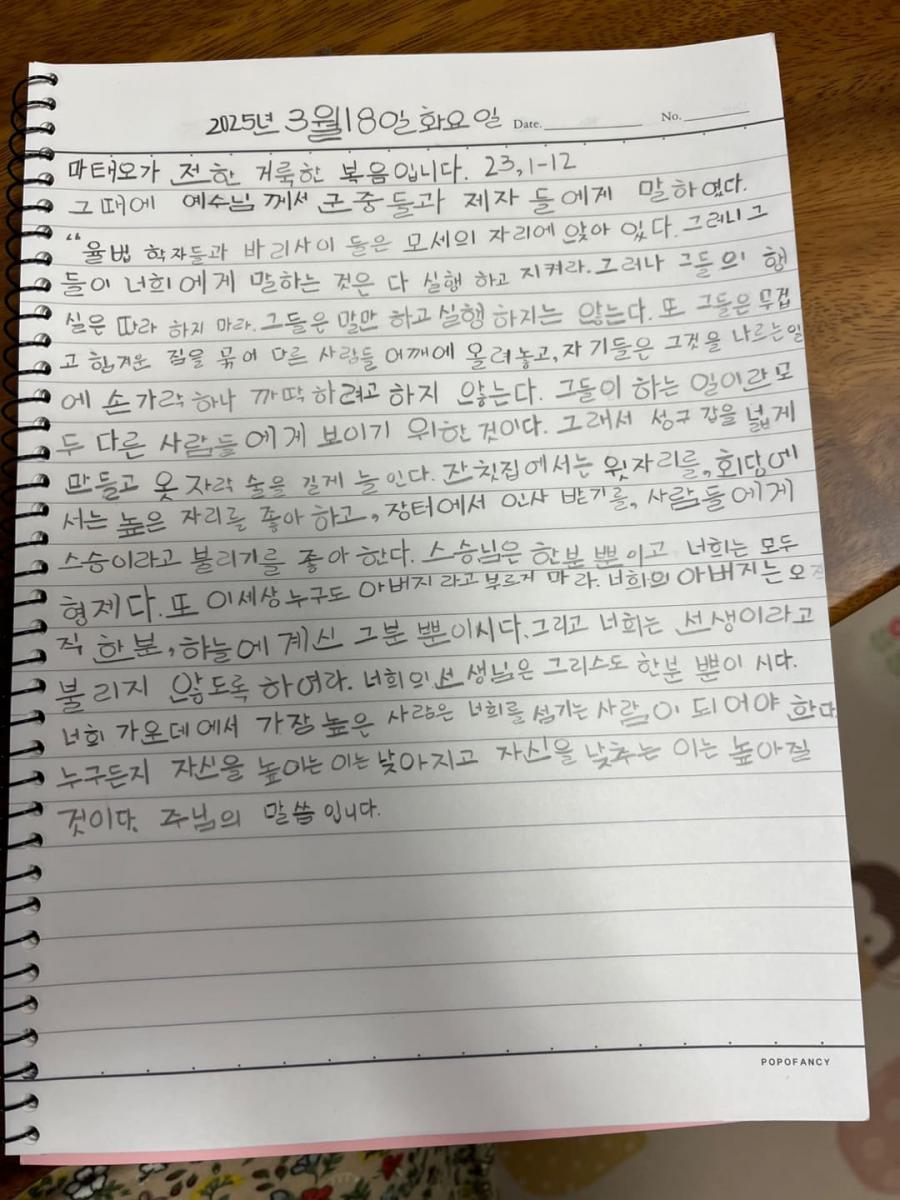 2025년 3월18일 화요일 Date. No.
마태오가 전한 거룩한 복음입니다. 23,1-12
그때에 예수님 께서 군중들과 제자 들에게 말하였다.
“율법 학자들과 바리사이 들은 모세의 자리에 앉아 있다. 그러니 그
들이 너희에게 말하는 것은 다 실행 하고 지켜라. 그러나 그들의 행
실은 따라 하지 마라. 그들은 말만 하고 실행 하지는 않는다. 또 그들은 무겁
고 힘겨운 짐을 묶어 다른 사람들 어깨에 올려놓고, 자기들은 그것을 나르는일
에 손가락 하나 까딱하려고 하지 않는다. 그들이 하는 일이란 모
두 다른 사람들에게 보이기 위한 것이다. 그래서 성구 갑을 넓게
만들고 옷 자락 술을 길게 늘인다. 잔칫집에서는 윗자리를, 회당에
서는 높은 자리를 좋아 하고, 장터에서 인사 받기를, 사람들에게
스승이라고 불리기를 좋아 한다. 스승님은 한분 뿐이고 너희는 모두
형제다. 또 이세상 누구도 아버지 라고 부르게 마라. 너희의 아버지는 오
직 한분, 하늘에 계신 그분 뿐이시다. 그리고 너희는 선생이라고
불리지 않도록 하여라. 너희의 선생님은 그리스도 한분 뿐이 시다.
너희 가운데에서 가장 높은 사람은 너희를 섬기는 사람이 되어야 한다
누구든지 자신을 높이는 이는 낮아지고 자신을 낮추는 이는 높아질
것이다. 주님의 말씀 입니다.
POPOFANCY